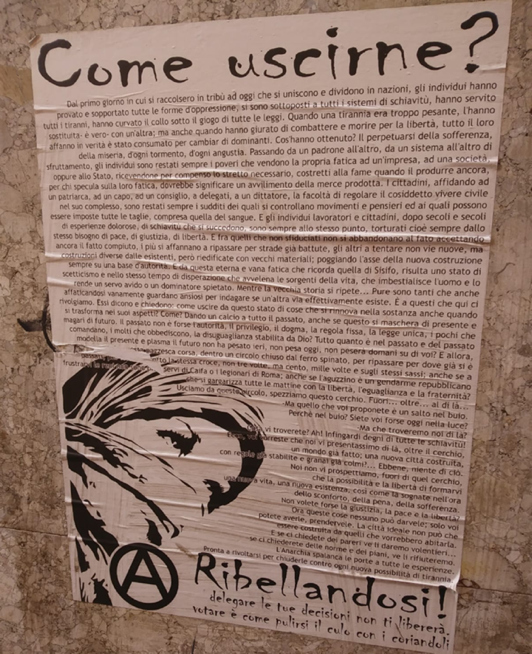 Come uscirne?
Dal primo giorno in cui si raccolsero in tribù ad oggi che si uniscono e dividono in nazioni, gli individui hanno
provato e sopportato tutte le forme d'oppressione, si sono sottoposti a tutti i sistemi di schiavitù, hanno servito
tutti i tiranni, hanno curvato il collo sotto il giogo di tutte le leggi. Quando una tirannia era troppo pesante, l'hanno
sostituita- è vero- con un'altra; ma anche quando hanno giurato di combattere e morire per la libertà, tutto il loro
affanno in verità è stato consumato per cambiar di dominanti. Cos'hanno ottenuto? Il perpetuarsi della sofferenza,
della miseria, d'ogni tormento, d'ogni angustia. Passando da un padrone all'altro, da un sistema all'altro di
sfruttamento, gli individui sono restati sempre i poveri che vendono la propria fatica ad un'impresa, ad una società,
oppure allo Stato, ricevendone per compenso lo stretto necessario, costretti alla fame quando il produrre ancora,
per chi specula sulla loro fatica, dovrebbe significare un avvilimento della merce prodotta. I cittadini, affidando ad
un patriarca, ad un capo, ad un consiglio, a delegati, a un dittatore, la facoltà di regolare il cosiddetto vivere civile
nel suo complesso, sono restati sempre i sudditi dei quali si controllano movimenti e pensieri ed ai quali possono
essere imposte tutte le taglie, compresa quella del sangue. E gli individui lavoratori e cittadini, dopo secoli e secoli
di esperienze dolorose, di schiavitù che si succedono, sono sempre allo stesso punto, torturati cioè sempre dallo
stesso bisogno di pace, di giustizia, di libertà. E fra quelli che non sfiduciati non si abbandonano al fato accettando
ancora il fatto compiuto, i più si affannano a ripassare per strade già battute, gli altri a tentare non vie nuove, ma
costruzioni diverse dalle esistenti, però riedificate con vecchi materiali; poggiando l'asse della nuova costruzione
sempre su una base d'autorità. E da questa eterna e vana fatica che ricorda quella di Sisifo, risulta uno stato di
scetticismo e nello stesso tempo di disperazione che avvelena le sorgenti della vita, che imbestialisce l'uomo e lo
rende un servo avido o un dominatore spietato. Mentre la vecchia storia si ripete... Pure sono tanti che anche
affaticandosi vanamente guardano ansiosi per indagare se un'altra via effettivamente esiste. È a questi che qui ci
rivolgiamo. Essi dicono e chiedono: come uscire da questo stato di cose che si rinnova nella sostanza anche quando
si trasforma nei suoi aspetti? Come? Dando un calcio a tutto il passato, anche se questo si maschera di presente e
magari di futuro. Il passato non è forse l'autorità, il privilegio, il dogma, la regola fissa, la legge unica, i pochi che
comandano, i molti che obbediscono, la disuguaglianza stabilita da Dio? Tutto quanto è nel passato e del passato
modella il presente e plasma il futuro non ha pesato ieri, non pesa oggi, non pesera domani su di voi? E allora,
corsa, dentro un circolo chiuso dal ferro spinato, per ripassare per dove già si è
stessa croce, non tre volte, ma cento, mille volte e sugli stessi sassi; anche se i
servi di Caifa o i legionari di Roma; anche se l'aguzzino è un gendarme repubblicano
che si gargarizza tutte le mattine con la libertà, l'eguaglianza e la fraternità?
Usciamo da questo circolo, spezziamo questo cerchio. Fuori, oltre... al di là...
-Ma quello che voi proponete è un salto nel buio.
Perchè nel buio? Siete voi forse oggi nella luce?
-Ma che troveremo noi di là?
vi troverete? Ah! Infingardi degni di tutte le schiavitù!
vorreste che noi vi presentassimo di là, oltre il cerchio,
un mondo già fatto; una nuova città costruita,
con regole già stabilite e granai già colmi!... Ebbene, niente di ciò.
Noi non vi prospettiamo, fuori di quel cerchio,
che la possibilità e la libertà di formarvi
una nuova vita, una nuova esistenza, così come la sognate nell'ora
dello sconforto, della pena, della sofferenza.
Non volete forse la giustizia, la pace e la libertà?
Ora queste cose nessuno può darvele; solo voi
potete averle, prendervele. La città ideale non può che
essere costruita da quelli che vorrebbero abitarla.
E se ci chiedete dei pareri ve ti daremo volentieri...
se ci chiederete delle norme e dei piani, ve li rifiuteremo.
L'Anarchia spalanca le porte a tutte le esperienze.
Pronta a rivoltarsi per chiuderle contro ogni nuova possibilità di tirannia.
Ribellandosi!
delegare le tue decisioni non ti libererà,
votare è come pulirsi il culo con i coriandoli